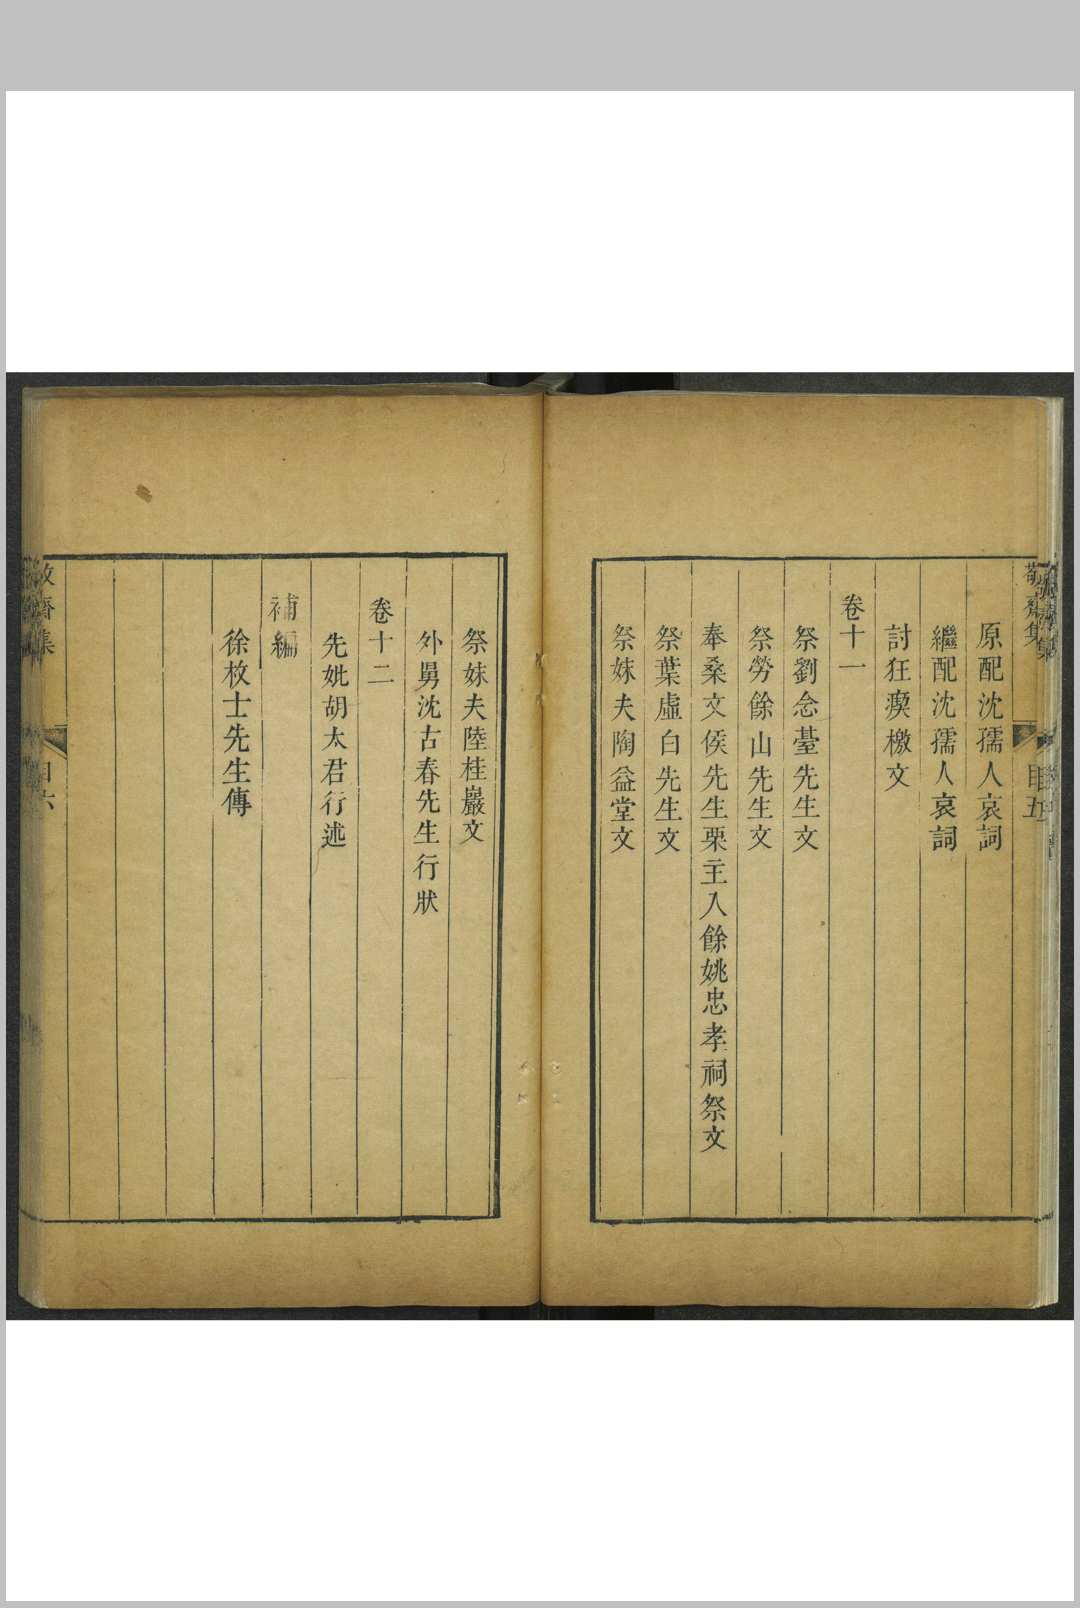 敬齋集
目五
原配沈孺人哀詞
繼配沈孺人哀詞
討狂瘈檄文
卷十一
祭劉念臺先生文
祭勞餘山先生文
奉桑文侯先生栗主入餘姚忠孝祠祭文
祭葉虛白先生文
祭妹夫陶益堂文
祭妹夫陸桂巖文
外舅沈古春先生行狀
卷十二
先妣胡太君行述
補編
徐枚士先生傳
齋集
目六